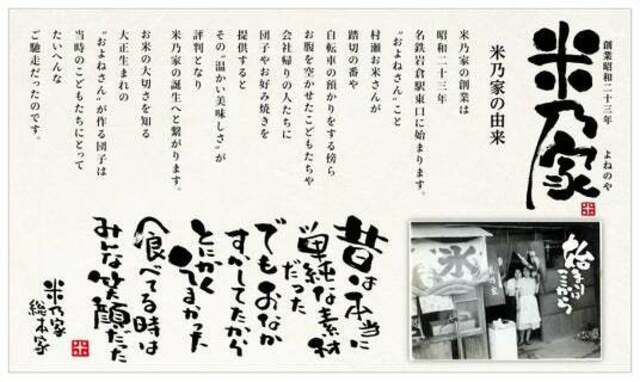 創業昭和二十三年　よねのや
米乃家
米乃家の由来
米乃家の創業は
昭和二十三年
名鉄岩倉駅東口に始まります。
"およねさん"こと
村瀬お米さんが
踏切の番や
自転車の預かりをする傍ら
お腹を空かせたこどもたちや
会社帰りの人たちに
団子やお好み焼きを
提供すると
その"温かい美味しさ"が
評判となり
米乃家の誕生へと繋がります。
お米の大切さを知る
大正生まれの
"およねさん"が作る団子は
当時のこどもたちにとって
たいへんな
ご馳走だったのです。
始まりは
ここから
氷
昔は本当に
単純な素材
だった
でもおなか
すかしてたから
とにかく
うまかった
食べてる時は
みんな笑顔だった
米乃家
総本家
米
米